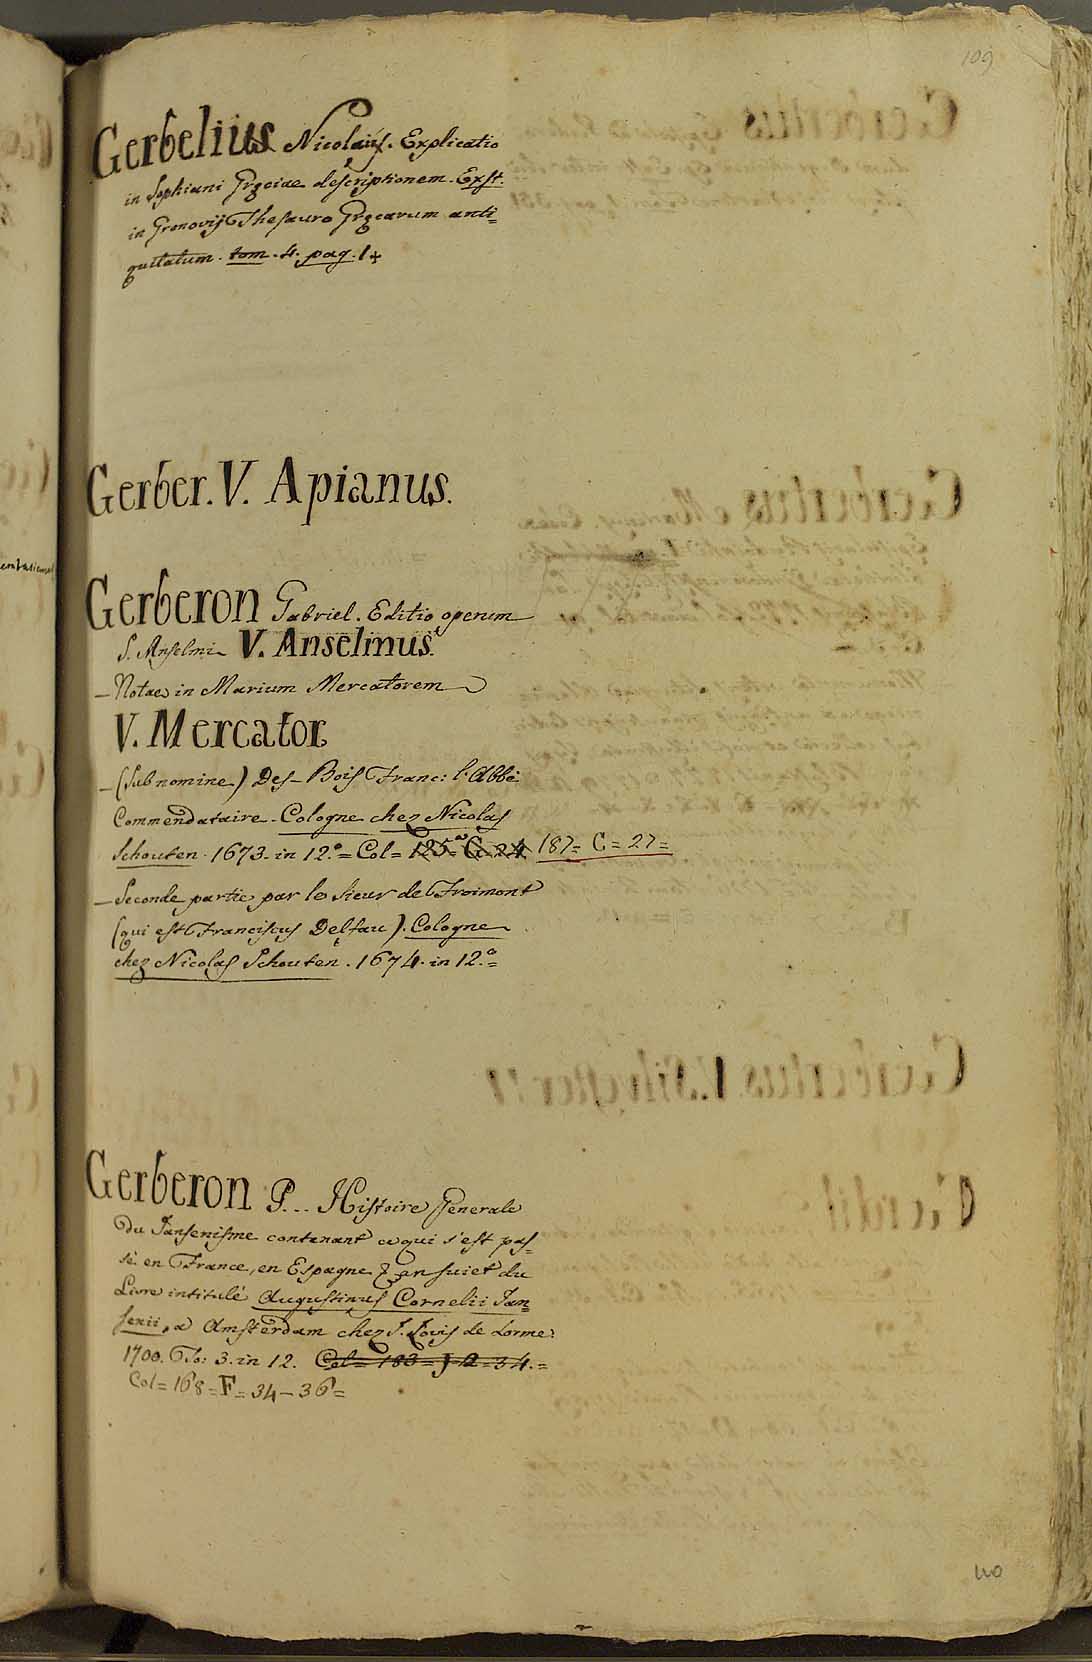 109
Gerbelius Nicolaus. Explicatio
in Sophiani Græciae descriptionem. Exst.
in Gronovij Thesauro Græcarum anti=
quitatum. tom. 4. pag. 1
Gerber. V. Apianus.
Gerberon Gabriel. Editio operum
S. Anselmi V. Anselmus.
– Notae in Marium Mercatorem
V. Mercator
– (sub nomine) Des-Bois Franc: l'Abbé
Commendataire. Cologne chez Nicolas
Schouten. 1673. in 12.º = Col = 125 = G. 24 187 = C = 27 =
– Seconde partie par le sieur de Froimont
(qui est Franciscus Delfau). Cologne
chez Nicolas Schouten. 1674. in 12.º =
Gerberon P... Histoire Generale
du Jansenisme contenant ce qui s'est pas=
sé en France, en Espagne & au suiet du
Livre intitulé Augustinus Cornelii Jan=
senii, a Amsterdam chez J. Louis de Lorme.
1700. To: 3. in 12. Col = 183 = J = 2 = 34. =
Col = 168 = F = 34 – 36 =
110